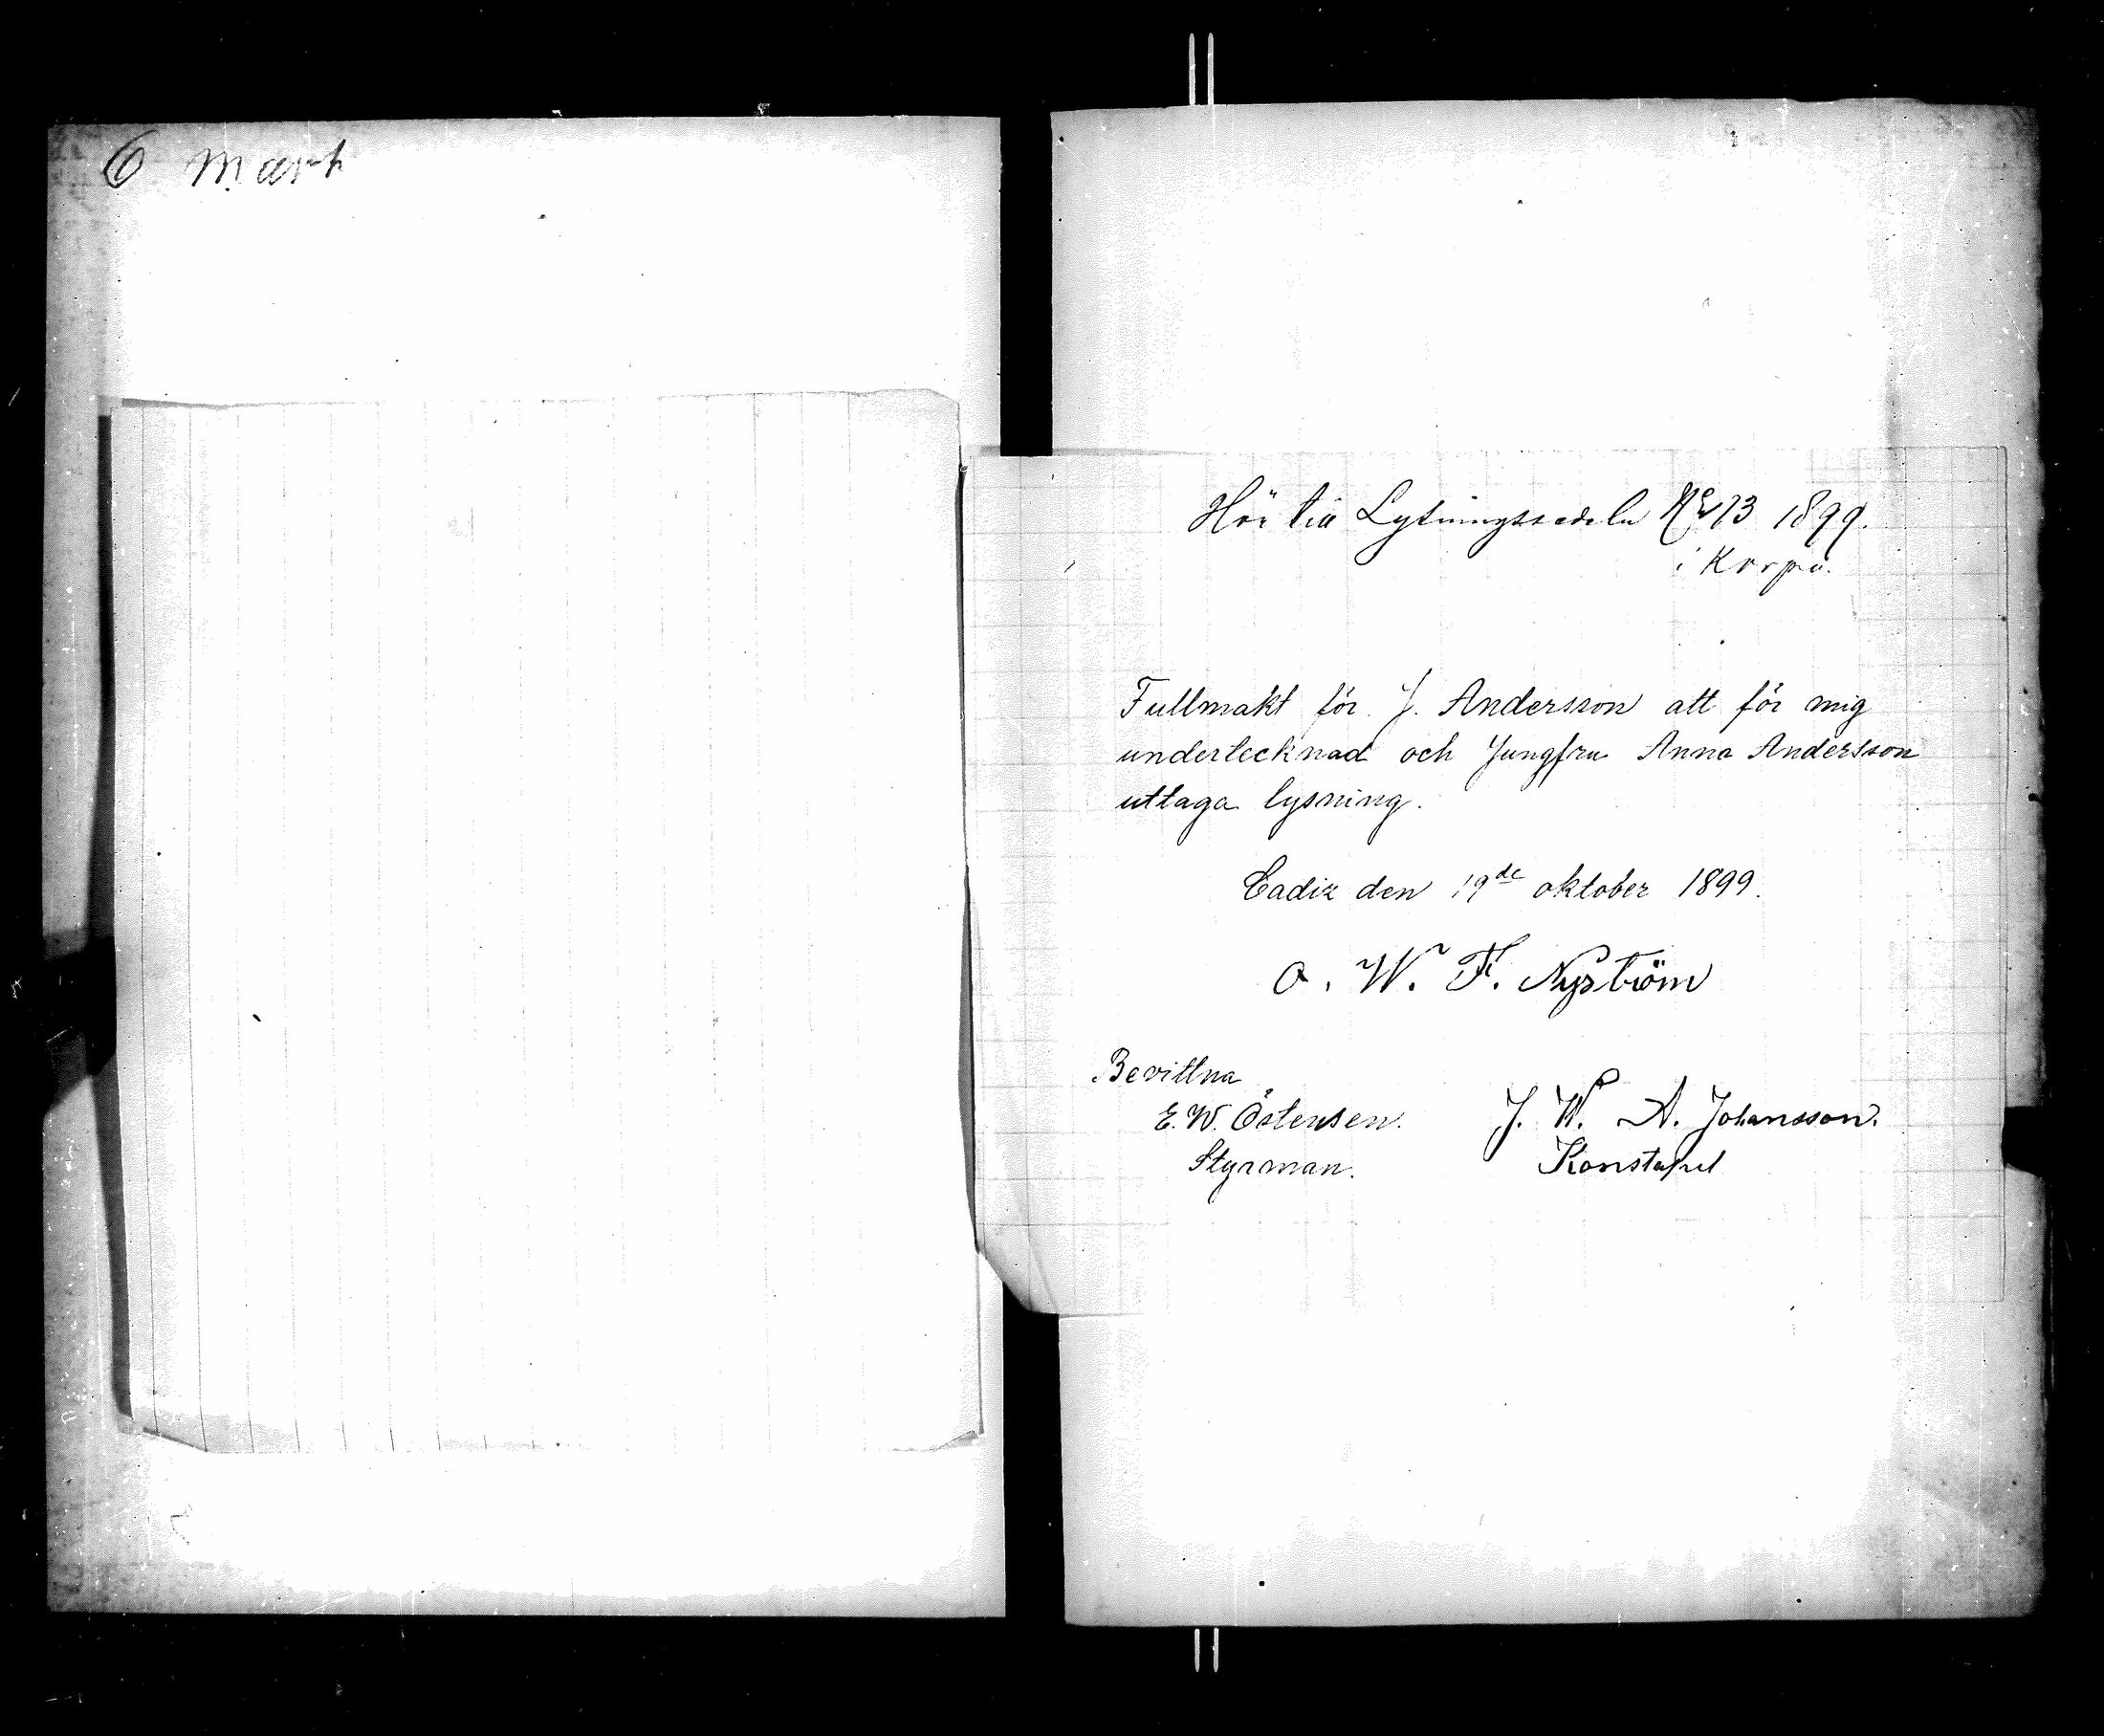 6 mark
Hör till Lysningssedeln No 13 1899.
i Korpo.
Fullmakt för J. Andersson att för mig
undertecknad och Jungfru Anna Andersson
uttaga lysning.
Cadiz den 19de oktober 1899.
O. W. F. Nyström
Bevittna
E. W. Östensen. J. W. A. Johansson.
Styrman. Konstapel